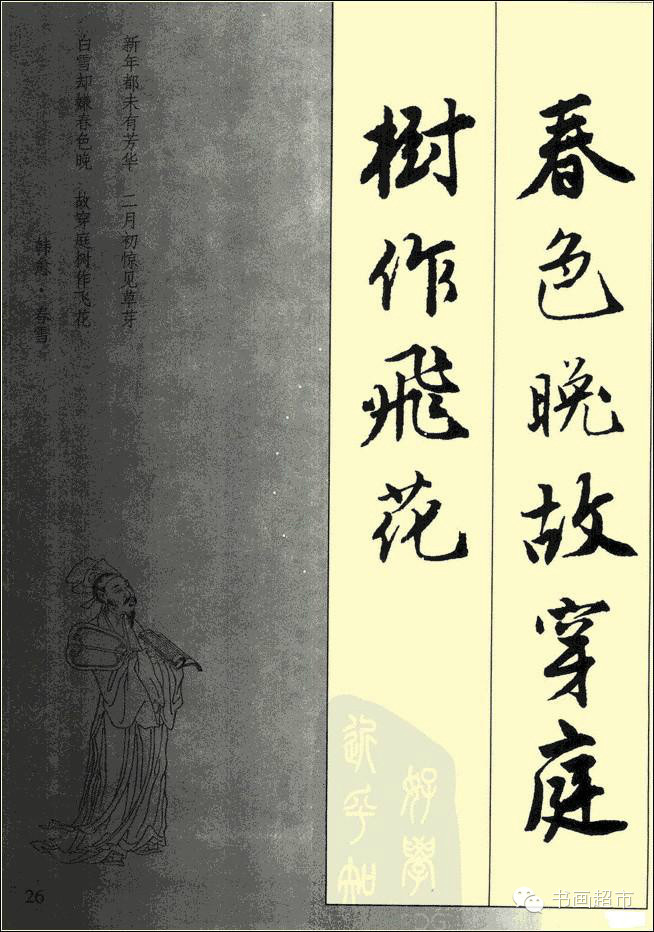 春色晚故穿庭
樹作飛花
新年都未有芳华 二月初惊见草芽
白雪却嫌春色晚 故穿庭树作飞花
韩愈·春雪
好學
近乎知
26
书画超市